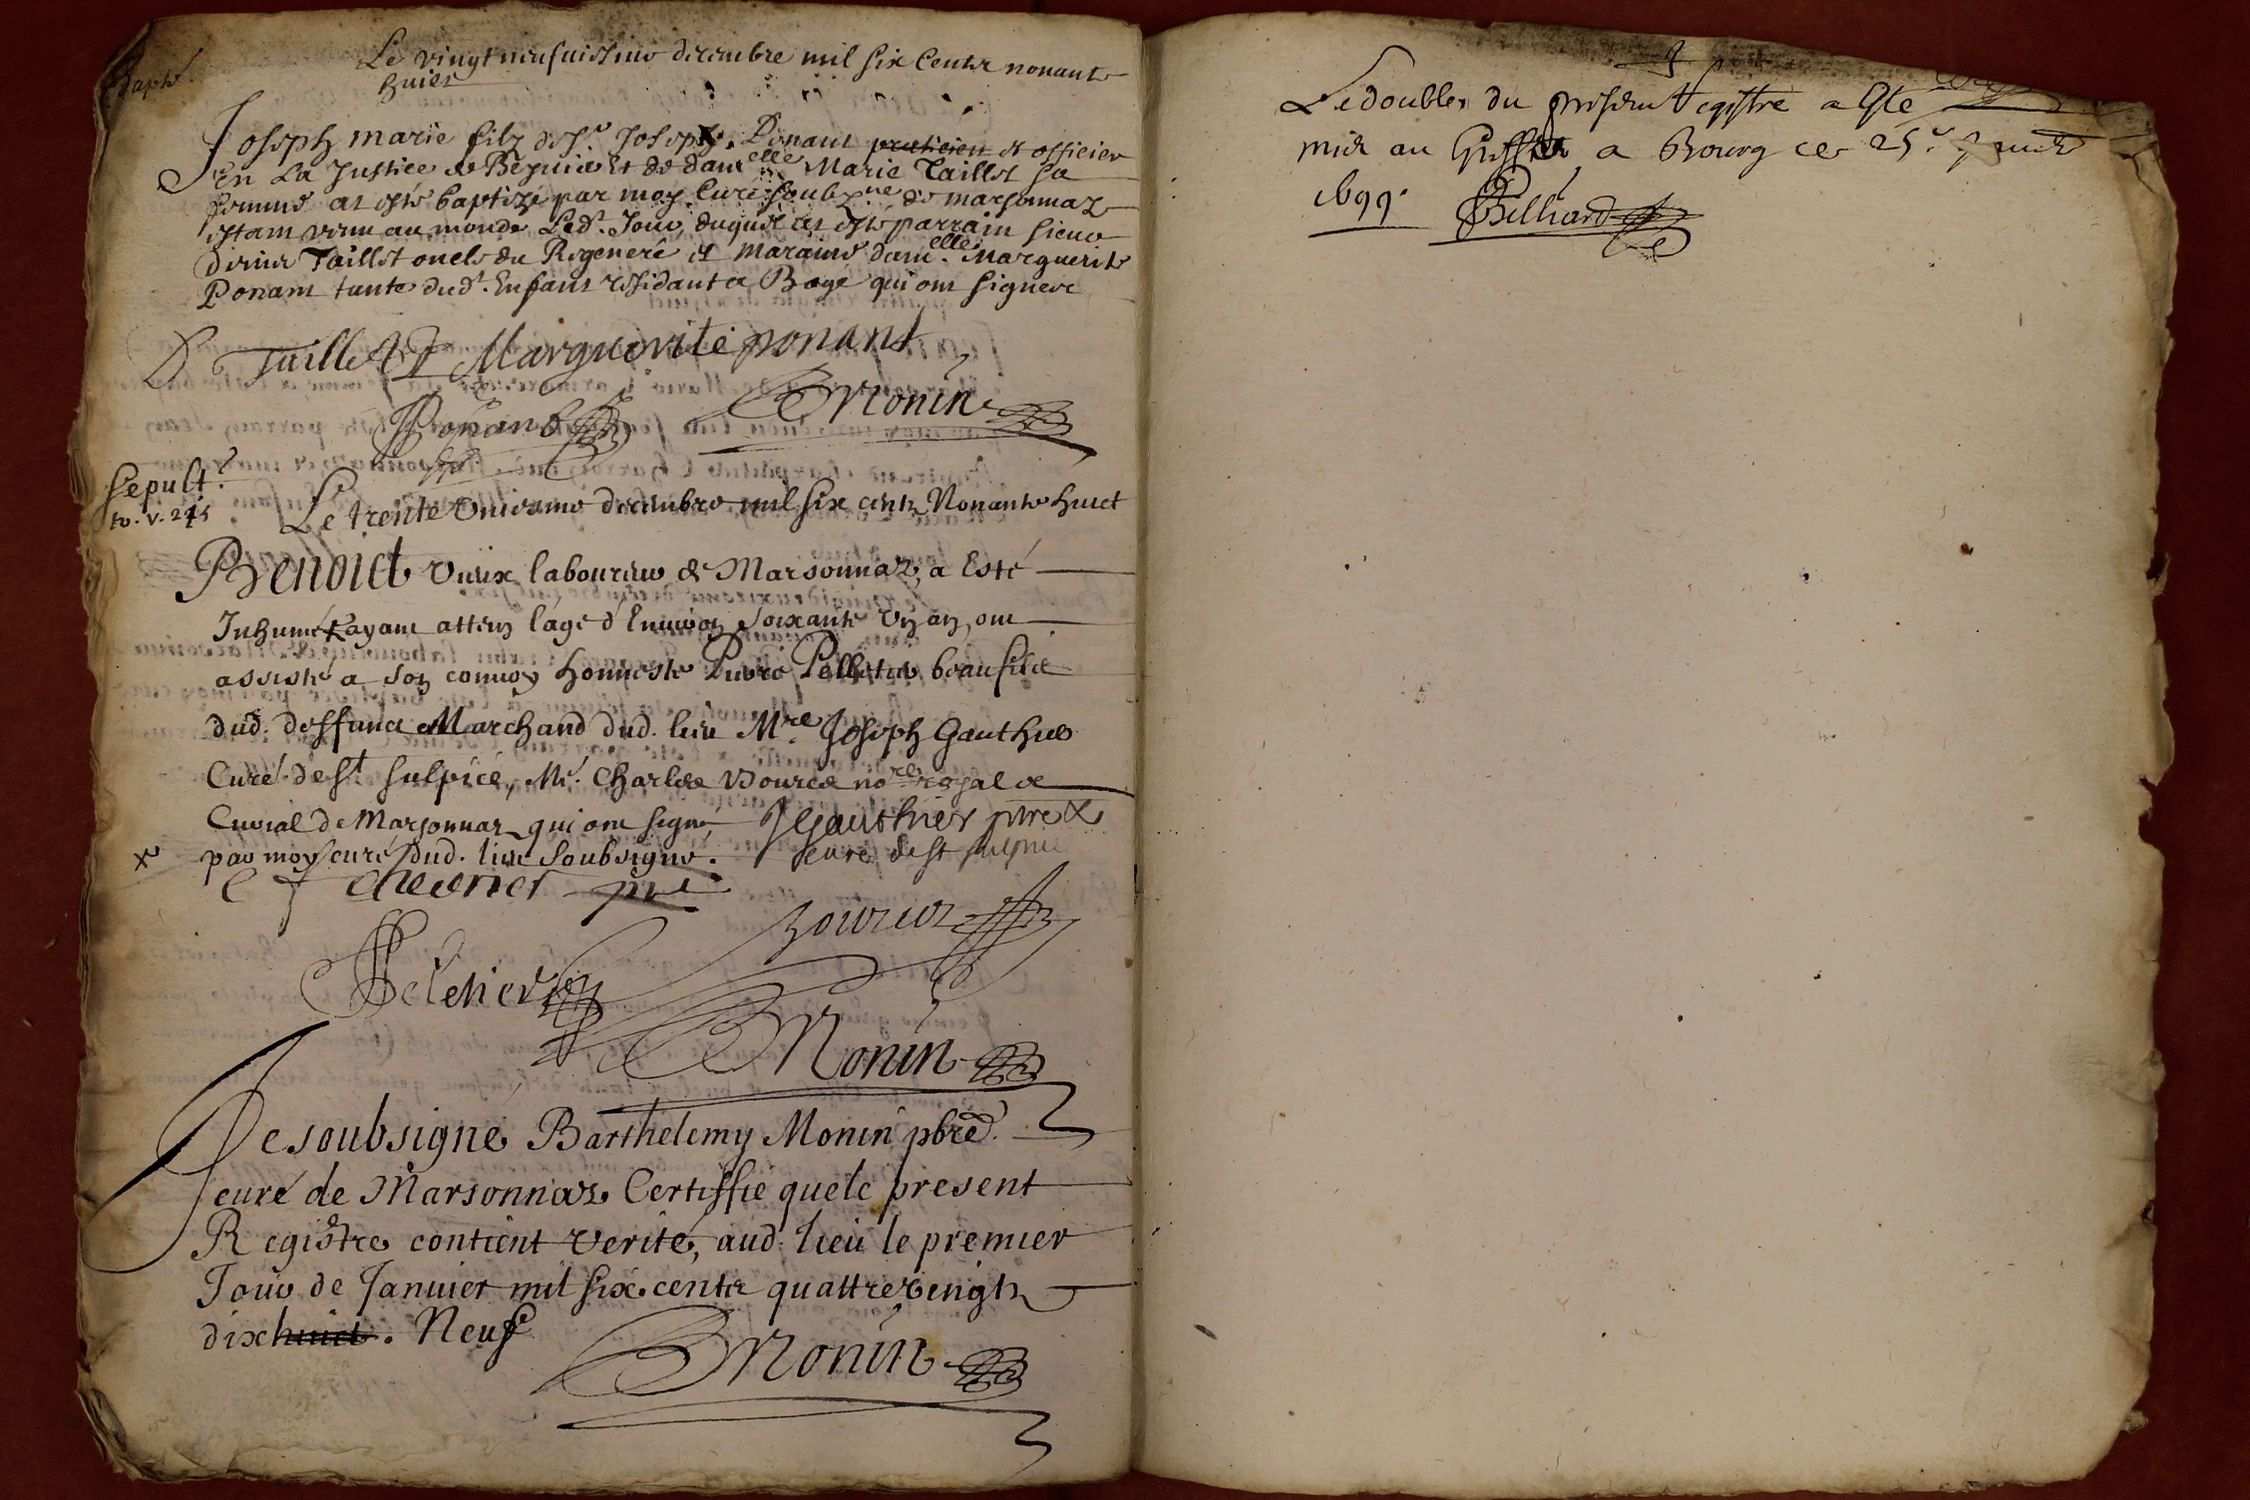 Bapte.
Le vingt neufuiesme decembre mil six Cents nonante
huict
Joseph marie filz de Sr. Joseph Ponant praticien et officier
En La Justice de et de damelle Marie Taillet sa
femme at esté baptizé par moy Curé soubzne de marsonnaz
estant venu au monde Led. Jour duquel at esté parrain sieur
Taillet oncle du Regeneré et maraine damelle. Marguerite
Ponant tante dud. Enfant residant a Bagé qui ont signere
D Taillet Marguerite ponant
Ponant BMonin
Sepult.
to. v. 245
Le trente Uniesme decembre mil six cents Nonante huict
Benoict Vieux laboureur de Marsonnaz a Esté
Inhumé ayant atteins l'agé d'Environ Soixante ans, ont
assisté a son convoy honneste Pierre Pelletier beaufilz
dud. deffunct Marchand dud. lieu Mre. Joseph Gauthier
Curé de St Sulpice, Me. Charles Bource nore royal &
Curial de Marsonnaz qui ont signé JGauthier ptre &
x par moy curé dud. lieu Soubsigne. curé de St sulpice
ptre
Bource
Peletier
BMonin
Je soubsigné Barthelemy Monin pbre.
curé de Marsonnaz Certiffie que le present
Registre contient verité, aud. lieu le premier
Jour de Janvier mil six cents quattre vingts
dix huict. Neuf
BMonin
Le double du present registre a esté
mis au Greffe a Bourg ce 25e.
1699. Billiard